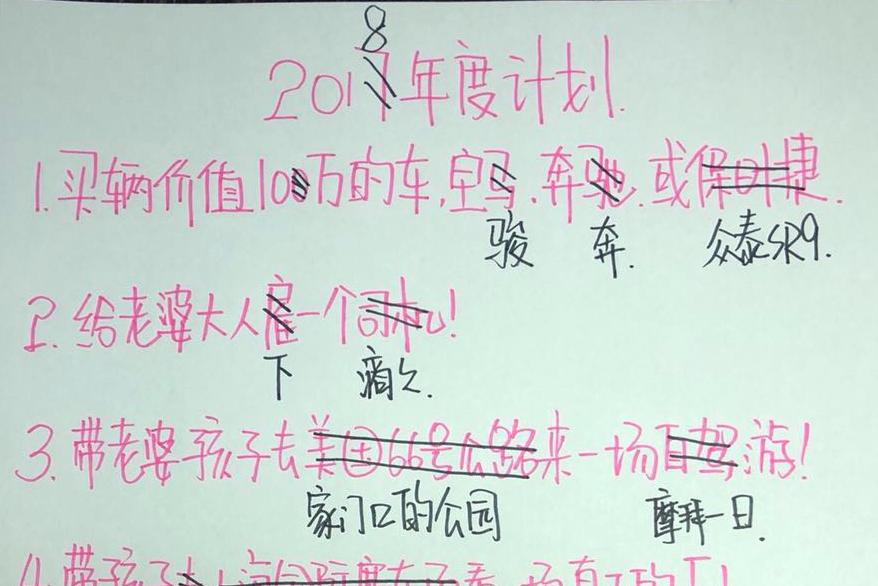 8
2017年度计划.
1.买辆价值100万的车,宝马、奔驰.或保时捷.
骏 奔. 众泰SR9.
2.给老婆大人雇一个司机!
下 滴
3.带老婆孩子去美国66号公路来一场自驾游!
家门口的公园 摩拜一日.
4.带孩子去